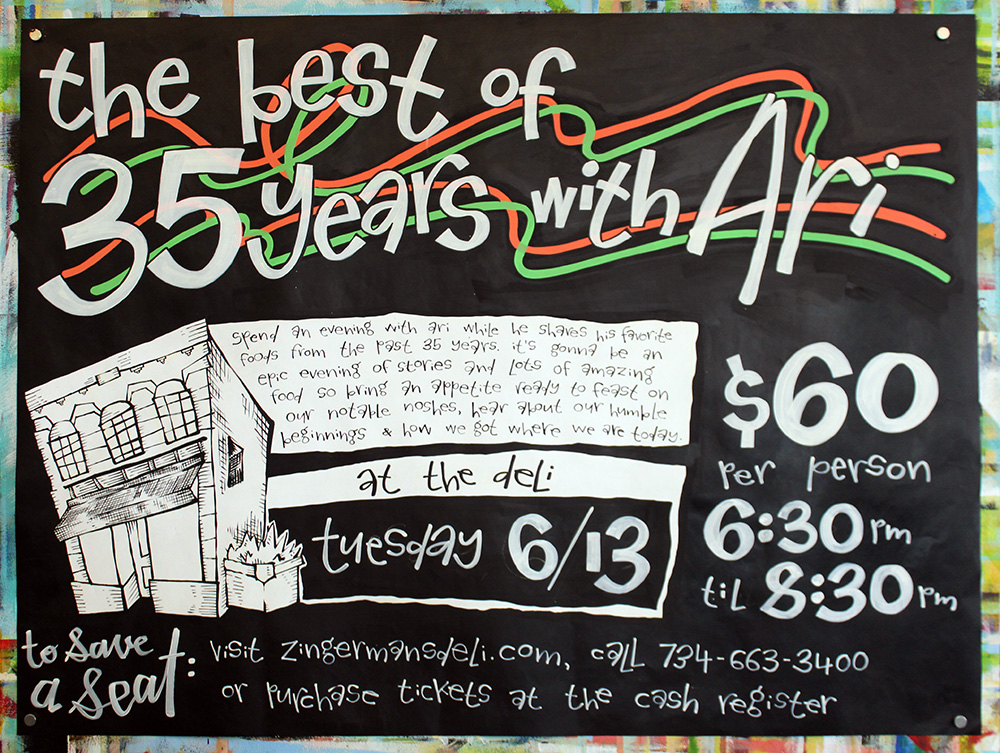 the best of
35 years with Ari
spend an evening with ari while he shares his favorite
foods from the past 35 years. it's gonna be an
epic evening of stories and lots of amazing
food so bring an appetite ready to feast on
our notable noshes, hear about our humble
beginnings & how we got where we are today.
at the deli
tuesday 6/13
$60
per person
6:30 pm
til 8:30 pm
to save
a seat:
visit zingermansdeli.com, call 734-663-3400
or purchase tickets at the cash register